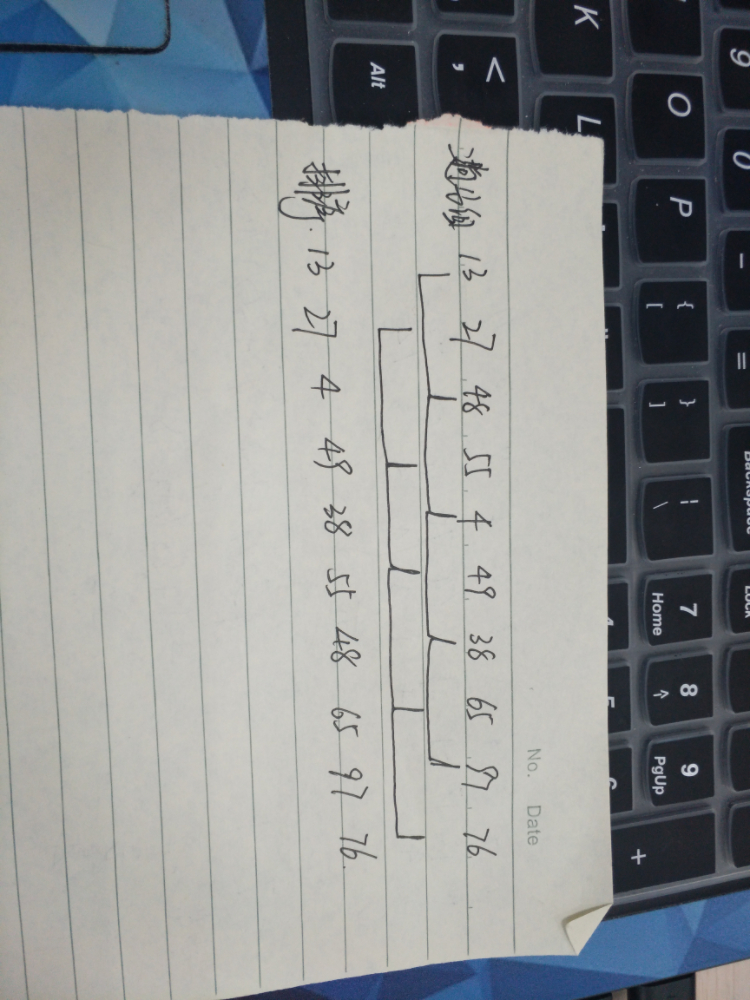 No. Date
分组 13 27 48 55 4 49 38 65 97 76
排序. 13 27 4 49 38 55 48 65 97 76.
9 0 - =
O P { [ } ] | \ 7 Home 8 9 PgUp +
K L
< ,
Alt